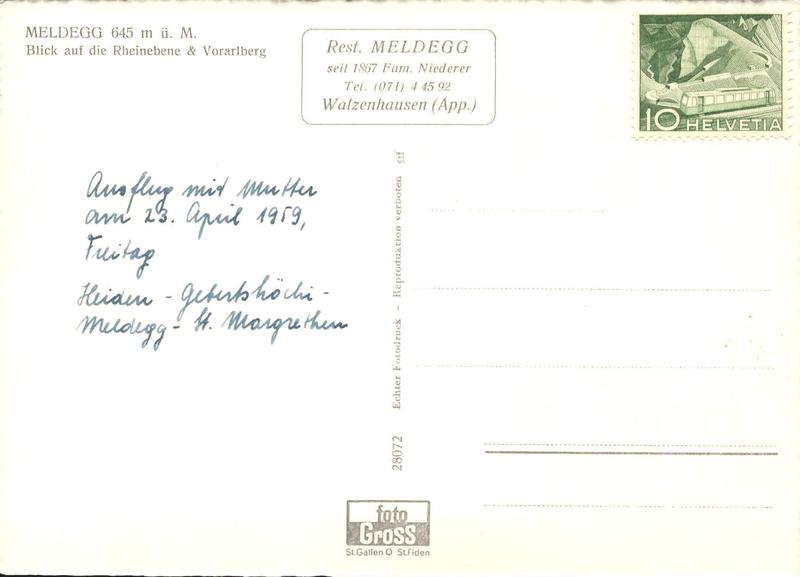 MELDEGG 645 m ü. M.
Blick auf die Rheinebene & Vorarlberg
Rest. MELDEGG
seit 1867 Fam. Niederer
Tel. (071) 4 45 92
Walzenhausen (App.)
10 HELVETIA
Ausflug mit Mutter
am 23. April 1959,
Freitag
Heiden - Gebertshöchi -
Meldegg - St. Margrethen
28072 Echter Fotodruck - Reproduktion verboten
foto
Gross
St.Gallen O St.Fiden